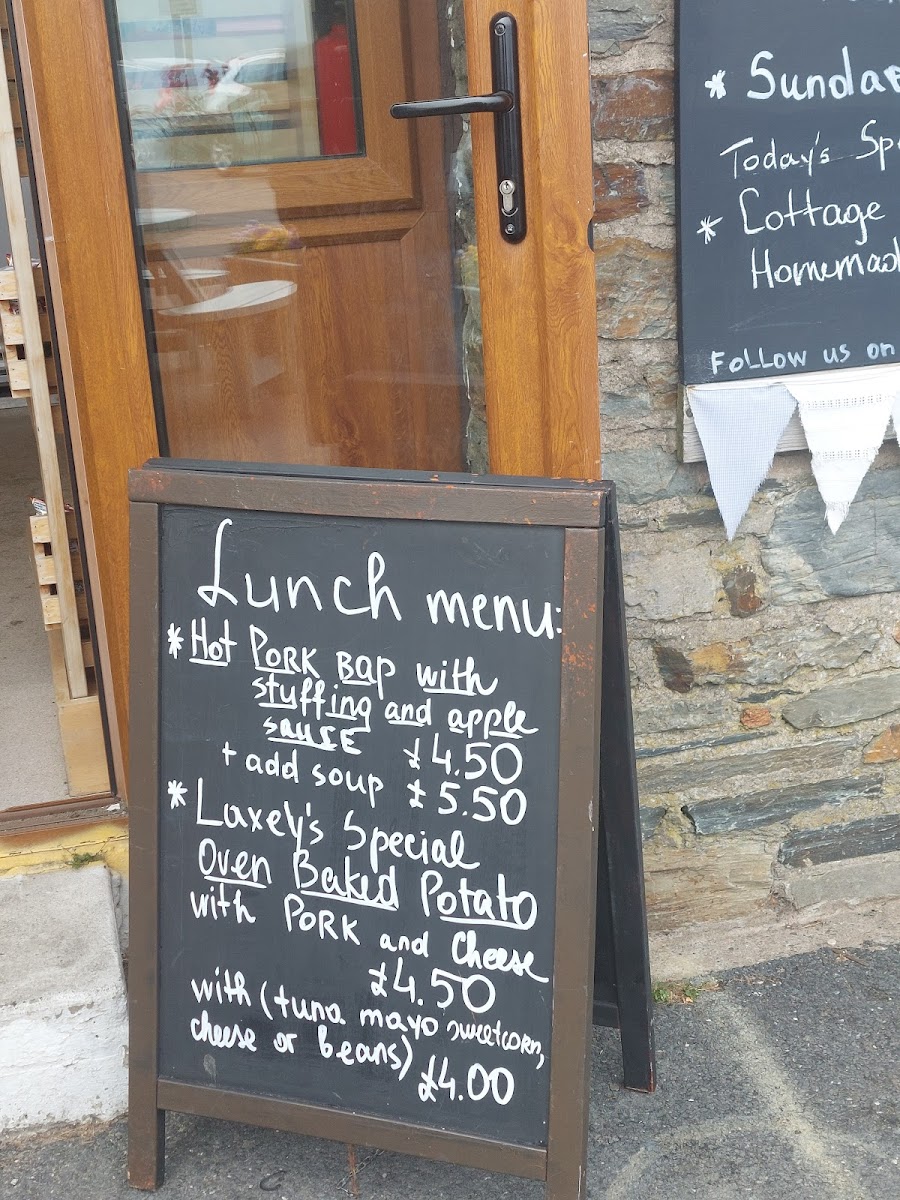 * Sunda
Today's Sp
* Cottage
Homemad
Follow us on
Lunch menu:
* Hot Pork Bap with
stuffing and apple
sauce £4.50
+ add soup £5.50
* Laxey's Special
Oven Baked Potato
with Pork and Cheese
£4.50
with (tuna mayo sweetcorn,
cheese or beans) £4.00